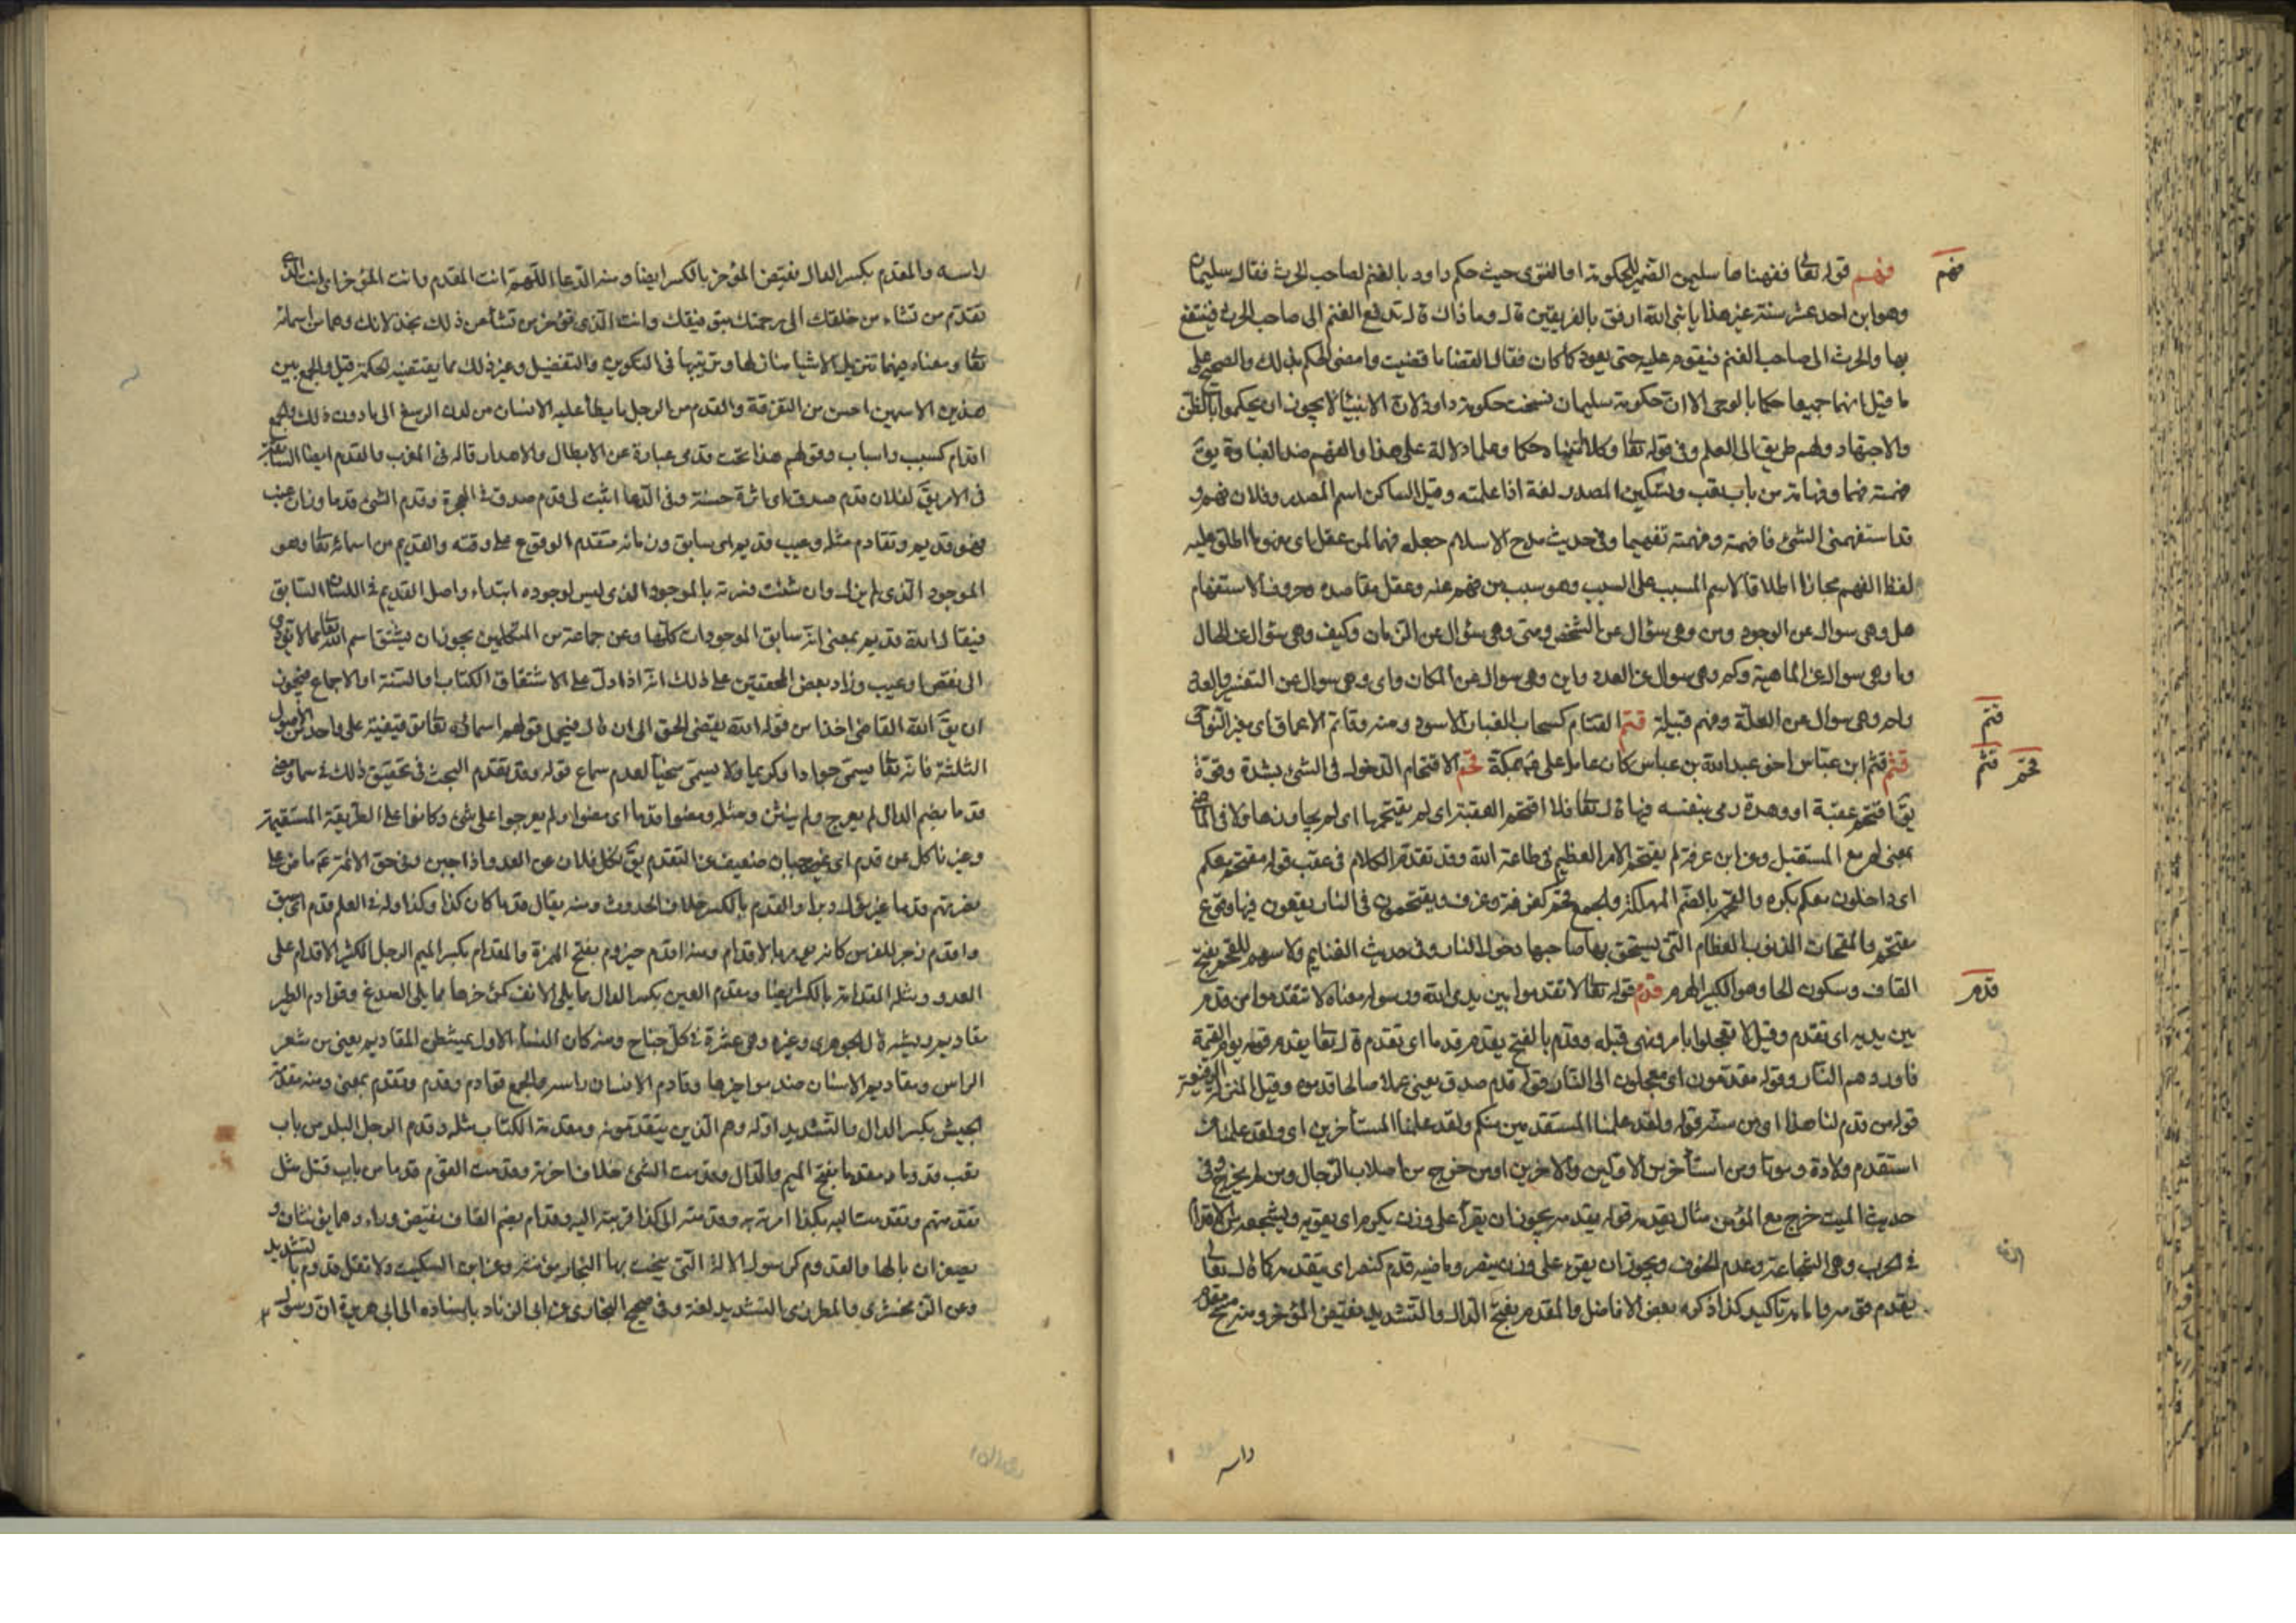 فهم
فهم قوله تعالى ففهمناها سليمن الضمير للحكومة او الفتوى حيث حكم داود بالغنم لصاحب الحرث فقال سليمان
وهو ابن احد عشر سنة غير هذا يا نبى الله ارفق بالفريقين قال وما ذاك قال تدفع الغنم الى صاحب الحرث فينتفع
بها والحرث الى صاحب الغنم فيقوم عليه حتى يعود كما كان فقال القضا ما قضيت وامضى الحكم بذلك والصحيح على
ما قيل انهما جميعا حكما بالوحى الا ان حكومة سليمان نسخت حكومة داود لان الانبيا لا يجوز ان يحكموا بالظن
والاجتهاد ولهم طريق الى العلم وفى قوله تعا وكلا اتينا حكما وعلما دلالة على هذا والفهم ضد الغباوة يقَ
فهمته فهما وفهامة من باب تعب وتسكين المصدر لغة اذا علمته وقيل الساكن اسم المصدر وفلان فهم و
قد استفهمنى الشئ فافهمته وفهمته تفهيما وفى حديث مدح الاسلام جعله فهما لمن عقل اى
لفظ الفهم مجازا اطلاقا لاسم المسبب على السبب وهو سبب من فهم عنه وعقل مقاصده وحروف الاستفهام
هل وهى سوال عن الوجود ومن وهى سؤال عن الشخص ومتى وهى سؤال عن الزمان وكيف وهى سؤال عن الحال
وما وهى سوال عن الماهية وكم وهى سوال عن العدد واين وهى سوال عن المكان واى وهى سوال عن
ولم وهى سوال عن العلّة وفهم قبيلة قتم القتام كسحاب الغبار الاسود ومنه وقاتم الاعماق اى مغبر النواحى
قتم
قثم قثم ابن عباس اخو عبد الله بن عباس كان عاملا على ع مبكة قحم الاقتحام الدخول فى الشئ بشدة وقوة
قثم قحم
يقَ اقتحم عقبة او وهدة رمى بنفسه فيها قال تعا فلا اقتحم العقبة اى لم يقتحمها اى لم يجاوزها ولا فى الماضى
بمعنى لم مع المستقبل وعن ابن عرفة لم يقتحم الامر العظيم فى طاعة الله وقد تقدم الكلام فى عقب قوله مقتحم معكم
اى داخلون معكم بكره والقحم بالضم المهلكة والجمع قحم كغرفة وغرف ويقتحمون فى النار يقعون فيها وقوع
مقتحم والمقحمات الذنوب العظام التى يستحق بها صاحبها دخول النار وفى حديث الغنايم ولا سهم للقحم بفتح
القاف وسكون الحا وهو الكبير الهرم قدم قوله تعا لا تقدموا بين يدى الله ورسوله معناه لا تتقدموا من قدم
قدم
بين يديه اى تقدم وقيل لا تعجلوا بامر ونهى قبله وقدم بالفتح يقدم قدما اى تقدم قال تعا يقدم قومه يوم القيمة
فاوردهم النار وقوله مقدمون اى معجلون الى النار قوله قدم صدق يعنى عملا صالحا قدموه وقيل المنزلة الرفيعة
قوله من قدم لنا هذا اى من سنه قوله ولقد علمنا المستقدمين منكم ولقد علمنا المستأخرين اى ولقد علمنا من
استقدم ولادة وموتا ومن استأخر من الاولين والاخرين او من خرج من اصلاب الرجال ومن لم يخرج وفى
حديث الميت خرج مع المؤمن مثال يقدمه قوله يقدمه يجوز ان يقرأ على وزن يكرم اى يقويه ويشجعه من الاقدام
فى الحرب وهى الشجاعة وعدم الخوف ويجوز ان يقرء على وزن ينصر وماضيه قدم كنصر اى يتقدمه كما قال تعالى
يقدم قومه وامامه تاكيد كذا ذكره بعض الافاضل والمقدم بفتح الدال والتشديد نقيض المؤخر ومنه مسح مقدم
راسه
راسه والمقدم بكسر الدال نقيض المؤخر بالكسر ايضا ومنه الدعا اللهم انت المقدم وانت المؤخر اى انت الذى
تقدم من تشاء من خلقك الى رحمتك بتوفيقك وانت الذى تؤخر من تشاء عن ذلك بخذلانك وهما من اسمائه
تعا ومعناه فيهما تنزيل الاشيا منازلها وترتيبها فى التكوين والتفضيل وغير ذلك مما يقتضيه الحكمة قيل والجمع بين
هذين الاسمين احسن من التفرقة والقدم من الرجل ما يطأ عليه الانسان من لدن الرسغ الى ما دون ذلك والجمع
اقدام كسبب واسباب وقولهم هذا تحت قدمى عبارة عن الابطال والاهدار قاله فى المغرب والقدم ايضا السابقة
فى الامر يقَ لفلان قدم صدق اى اثرة حسنة وفى الدعا اثبت لى قدم صدق فى الهجرة وقدم الشئ قدما وزان عنب
فهو قديم وتقادم مثله وعيب قديم اى سابق وزمانه متقدم الوقوع على وقته والقديم من اسمائه تعا وهو
الموجود الذى لم يزل وان شئت فسرته بالموجود الذى ليس لوجوده ابتداء واصل القديم فى اللسان السابق
فيقال الله قديم بمعنى انه سابق الموجودات كلها وعن جماعة من المتكلمين يجوز ان يشتق اسم الله تعا مما لا يؤدى
الى نقص او عيب وزاد بعض المحققين على ذلك انه اذا دل على الاشتقاق الكتاب او السنة او الاجماع فيجوز
ان يقَ الله القاضى اخذا من قوله الله يقضى الحق الى ان قال فيحمل قولهم اسمائه تعا توقيفية على واحد من الاصول
الثلثة فانه تعا يسمى جوادا وكريما ولا يسمى سخيا لعدم سماع قوله وقد تقدم البحث فى تحقيق ذلك فى سما ومضى
قدما بضم الدال لم يعرج ولم ينثن ومثله ومضوا قدما اى مضوا ولم يعرجوا على شئ وكانوا على الطريقة المستقيمة
وغير ناكل عن قدم اى غير جبان ضعيف عن التقدم يقَ نكل فلان عن العدو اذا جبن وفى حق الائمة ع ماض على
نصرتهم قدما غير مول دبرا والقدم بالكسر خلاف الحدوث ومنه يقال قدما كان كذا وكذا وله فى العلم قدم اى سبق
واقدم زجر للفرس كانه يومر بالاقدام ومنه اقدم حيزوم بفتح الهمزة والمقدام بكسر الميم الرجل الكثير الاقدام على
العدو ومثله المقدامة بالكسر ايضا ومقدم العين بكسر الدال مما يلى الانف كمؤخرها مما يلى الصدغ وقوادم الطير
مقاديم ريشه قال الجوهرى وغيره وهى عشرة فى كل جناح ومنه كان النساء الاول يمتشطن المقاديم يعنى من شعر
الراس ومقاديم الاسنان ضد مواخيرها وقادم الانسان راسه والجمع قوادم وقدم وتقدم بمعنى ومنه مقدمة
الجيش بكسر الدال والتشديد اوله وهم الذين يتقدمونه ومقدمة الكتاب مثله وقدم الرجل البلد من باب
تعب قدوما ومقدما بفتح الميم والدال وقدمت الشئ خلاف اخرته وقدمت القوم قدما من باب قتل مثل
تقدمتهم وتقدمت اليه بكذا امرته به وقدمته الى كذا قربته اليه وقدام بضم القاف نقيض وراء وهما يؤنثان و
يصغران بالها والقدوم كرسول الالة التى ينحت بها النجار مؤنثة وعن ابن السكيت ولا تقل قدوم بالتشديد
وعن الزمخشرى والمطرزى التشديد لغة وفى صحيح البخارى عن ابى الزناد باسناده الى ابى هريرة ان رسول